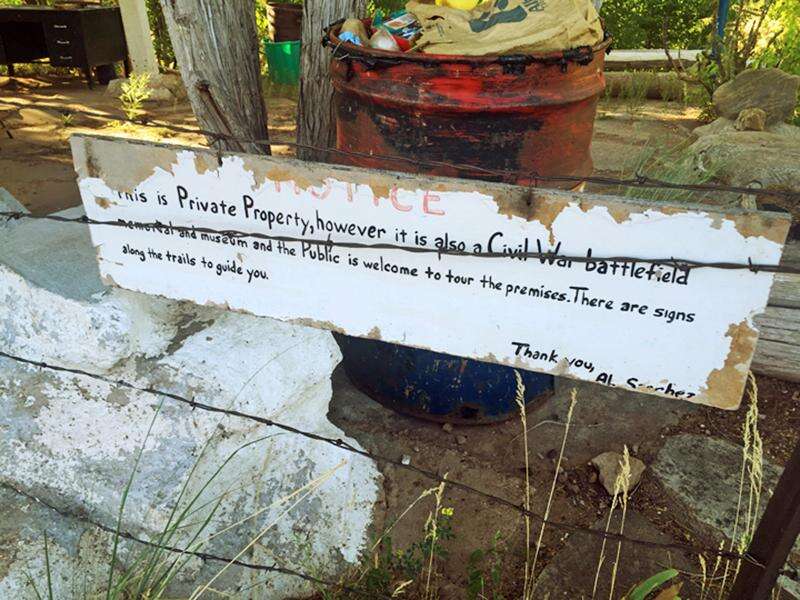 NOTICE
This is Private Property, however it is also a Civil War battlefield
memorial and museum and the Public is welcome to tour the premises. There are signs
along the trails to guide you.
Thank you,
Al Sanchez